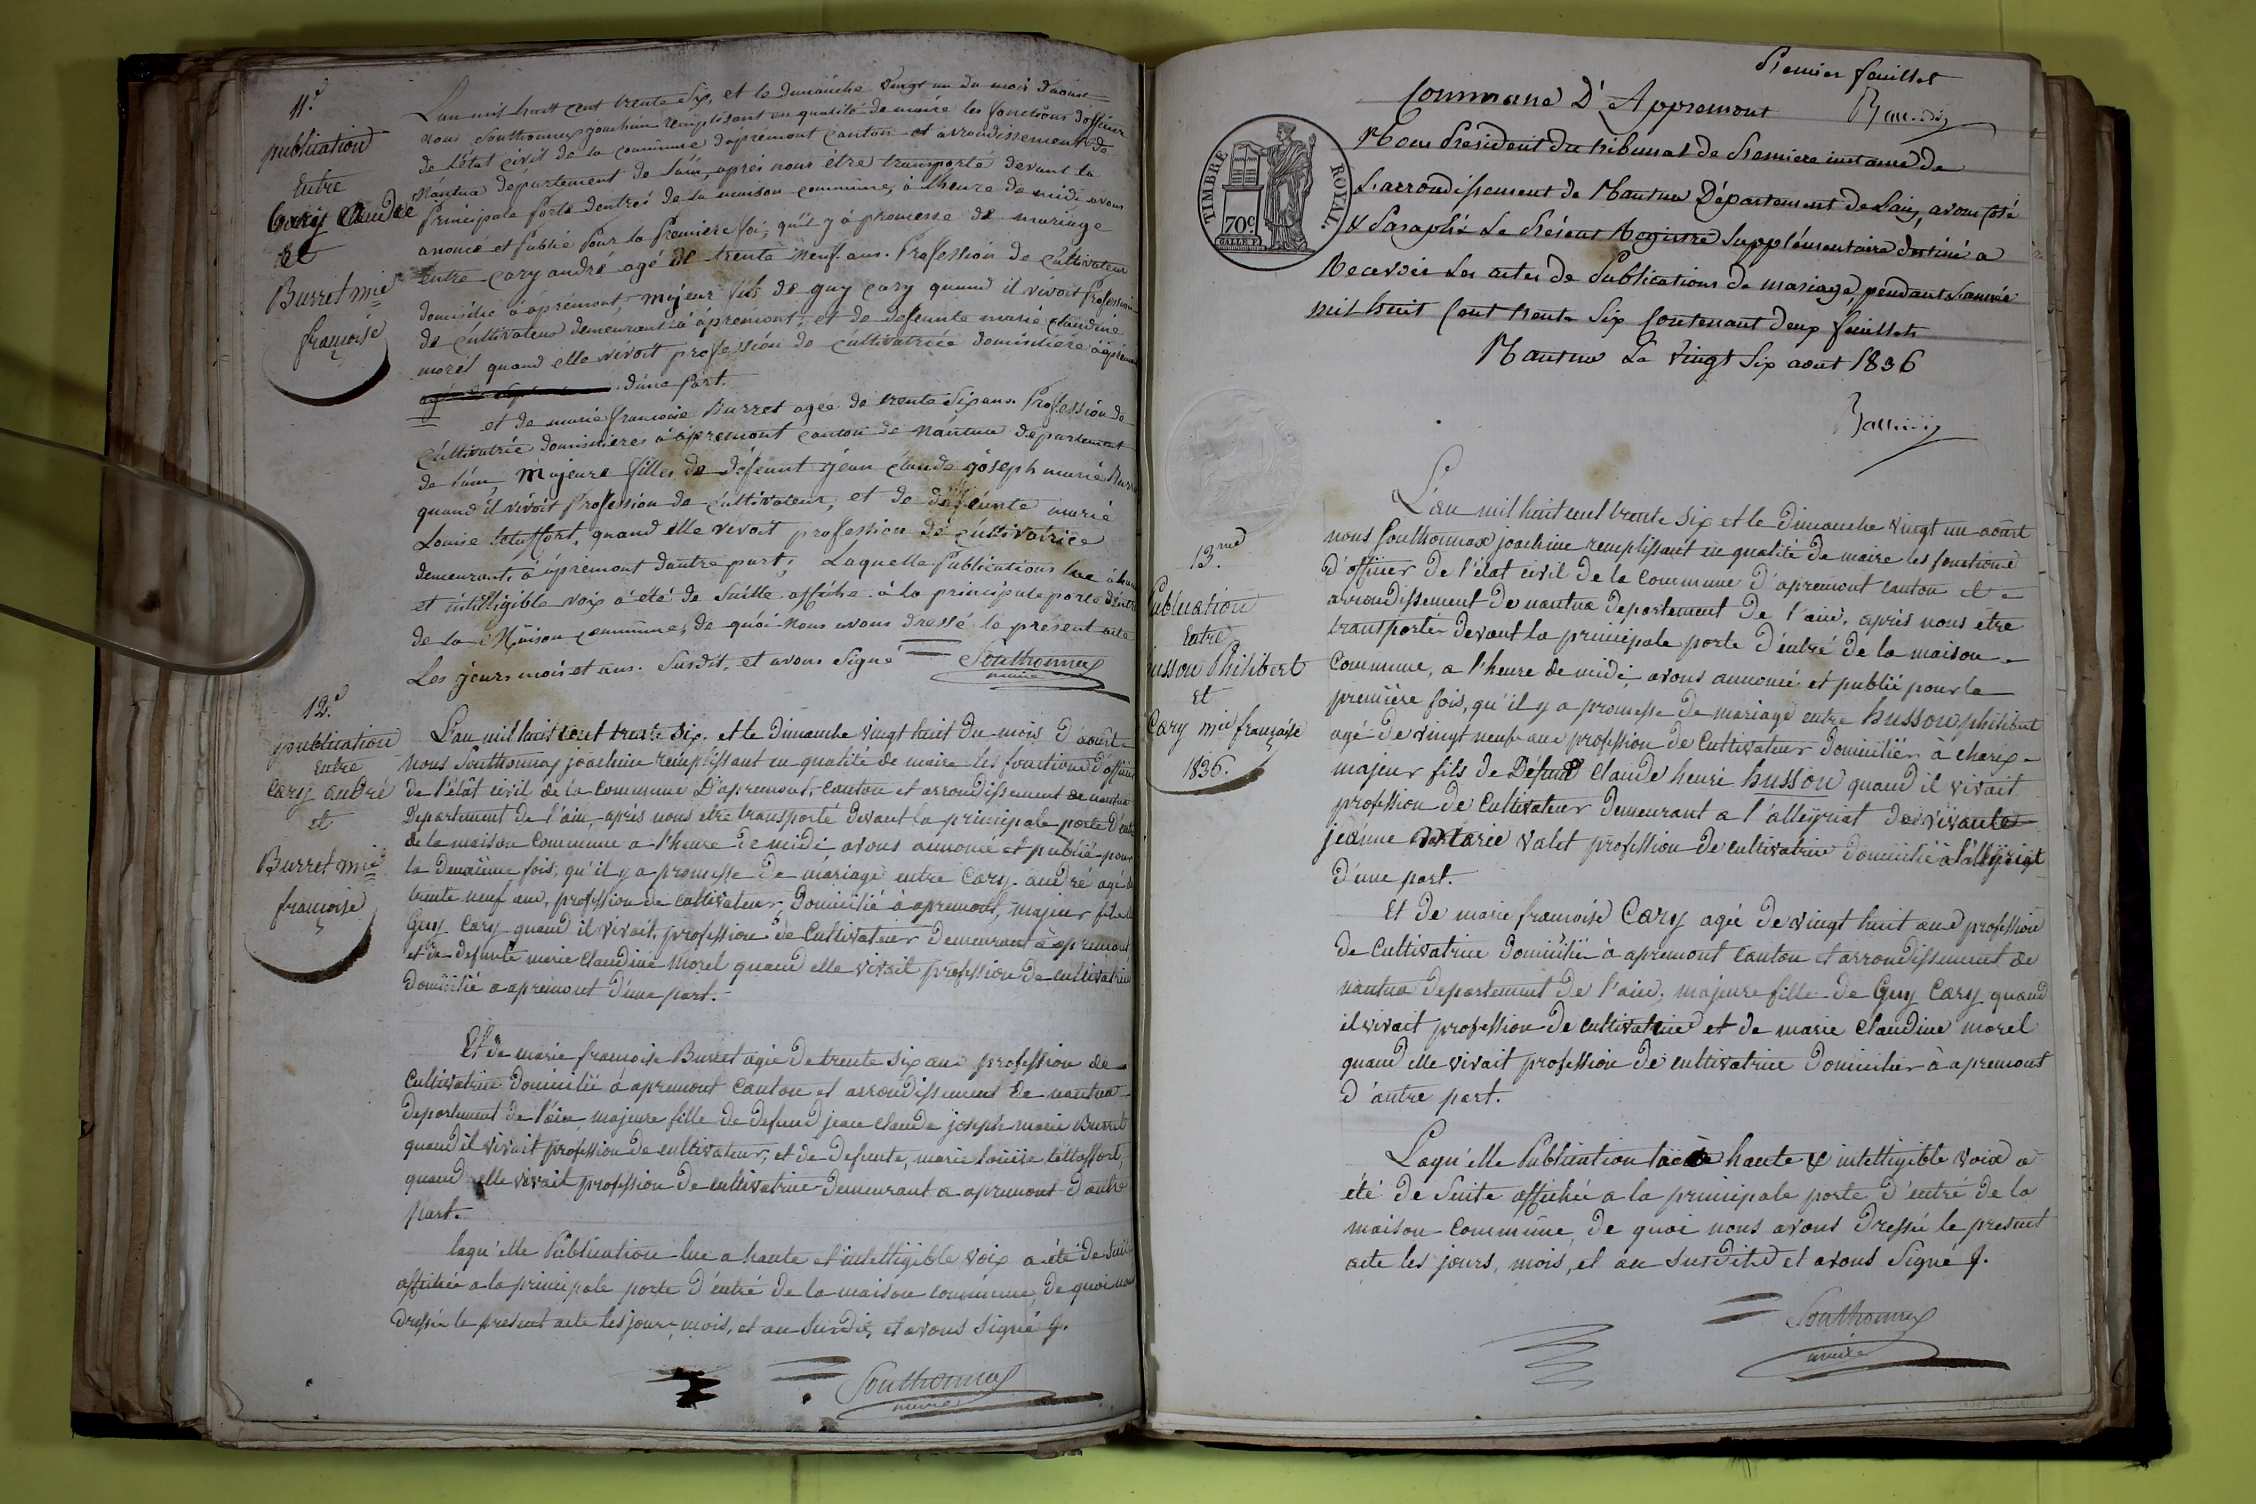 11.e
publication
Entre
Cary Claude
et
Burret mie
françoise
L'an mil huit cent trente six, et le dimanche vingt un du mois d'aoust
nous Southonnax joachim remplissant en qualité de maire les fonctions d'officier
de l'état civil de la commune d'apremont canton et arrondissement de
Nantua département de l'ain, après nous être transporté devant la
Principale porte d'entrée de la maison commune, à l'heure de midi avons
anoncé et publié pour la première foi, qu'il y à promesse de mariage
entre cary andré agé de trente neuf ans. Profession de cultivateur
domicilié à apremont, majeur fils de guy cary quand il vivoit profession
de cultivateur demeurant à apremont, et de defeunte marie claudine
morel quand elle vivoit profession de cultivatrice domiciliere à apremont
d'une part.
et de marie françoise Burret agée de trente six ans. Profession de
cultivatrice domicilieres à apremont canton de Nantua departement
de l'ain, Majeure filles de défeunt jean claude joseph marie Burret
quand il vivoit Profession de cultivateur, et de défeunte marie
Louise quand elle vivoit profession de cultivatrice
demeurant à apremont dautre part; Laquelle Publications lue à haute
et intelligible voix à été de suitte affiché à la principale porte d'entré
de la Maison commune, de quoi nous avons dressé le présent acte
Les jours mois et ans. susdit, et avons signé
Southonnax
maire
12.e
publication
Entre
Cary andré
et
Burret mie
françoise
L'an mil huit cent trente six, et le dimanche vingt huit du mois d'aoürt
nous Southonnax joachim remplissant en qualité de maire les fonctions d'officier
de l'état civil de la commune D'apremont, canton et arrondissement de nantua
Département de l'ain, après nous etre transporté devant la principale porte d'entré
de la maison commune a l'heure de midi avons annoncé et publié pour
la deuxième fois, qu'il y a promesse de mariage entre Cary andré agé de
trente neuf ans, profession de cultivateur, Domicilié à apremont, majeur fils de
Guy Cary quand il vivait, profession de Cultivateur Demeurant à apremont
et de defunte marie claudine morel quand elle vivait profession de cultivatrice
domicilié a apremont d'une part.
Et de marie françoise Burret agée de trente six ans profession de
Cultivatrice domicilié à apremont canton et arrondissement de nantua
departement de l'ain, majeure fille de defund jean claude joseph marie Burret
quand il vivait profession de cultivateur, et de Defunte, marie louise
quand elle vivait profession de cultivatrice demeurant a apremont d'autre
part.
laqu'elle Publication lue a haute et intelligible voix a été de suite
affichée a la principale porte d'entré de la maison commune, de quoi nous
dressé le present acte les jour, mois, et an susdit, et avons signé
Southonnax
maire
Premier feuillet
Commune D'Appremont
Nous Président du tribunal de Premiere instance de
L'arrondissement de Nantua Département de L'ain, avons coté
& Paraphé Le Présent Registre Supplémentaire destiné a
Recevoir Les actes de Publications de mariage, pendant L'année
mil huit Cent trente Six Contenant deux feuillets
Nantua Le Vingt Six aout 1836
TIMBRE ROYAL.
70c
13.me
Publication
Entre
husson Philibert
et
Cary mie françoise
1836.
L'an mil huit cent trente six et le Dimanche vingt un aoürt
nous Southonnax joachim remplissant en qualité de maire les fonctions
d'officier de l'état civil de la commune d'apremont canton et
arrondissement de nantua departement de l'ain, après nous être
transporter devant la principale porte d'entré de la maison
commune, a l'heure de midi, avons annoncé et publié pour la
première fois, qu'il y a promesse de mariage entre husson philibert
agé de vingt neuf ans profession de cultivateur Domicilier à charix
majeur fils de Défund Claude henri husson quand il vivait
profession de Cultivateur demeurant a l'alleyriat de vivante
jeanne Marie Valet profession de cultivatrice domicilié à l'alleyriat
d'une part.
Et de marie françoise Cary agée de vingt huit ans profession
de Cultivatrice Domicilié à apremont canton et arrondissement de
nantua departement de l'ain, majeure fille de Guy Cary quand
il vivait profession de cultivatrice et de marie claudine morel
quand elle vivait profession de cultivatrice Domicilier à apremont
d'autre part.
Laqu'elle Publication haute & intelligible voix a
été de suite affichée a la principale porte d'entré de la
maison commune, de quoi nous avons dressé le present
acte les jours, mois, et an susdit et avons signé
Southonnax
maire